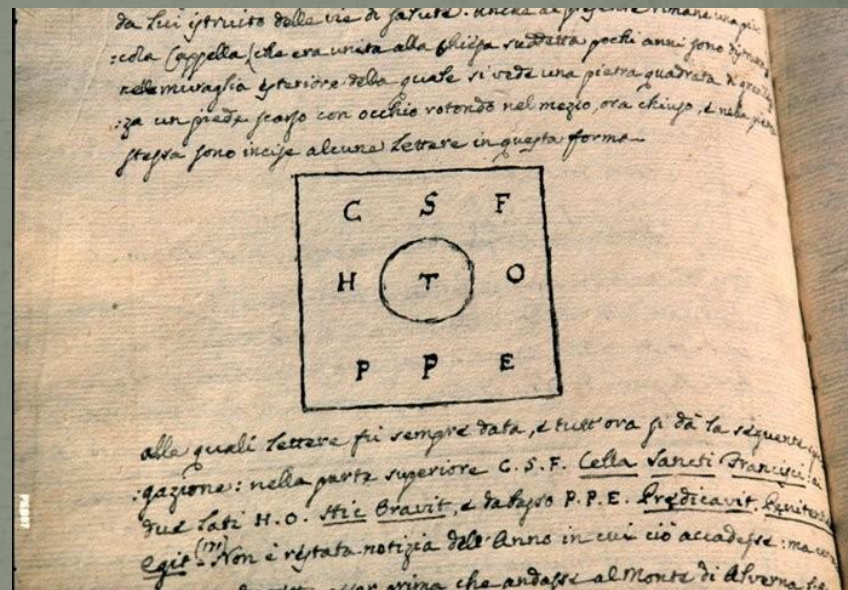 da Lui istruito delle vie di salute. Anche al presente rimane una pic
:cola Cappella (che era unita alla Chiesa suddetta pochi anni sono
nelle muraglia esteriore della quale si vede una pietra quadrata di
:za un piede scarso con occhio rotondo nel mezio, ora chiuso, e nella
stessa sono incise alcune Lettere in questa forma
C S F
H T O
P P E
alle quali Lettere fu sempre data, e tutt'ora si dà la seguente
:gazione: nella parte superiore C. S. F. Cella Sancti Francisci: ai
due Lati H. O. Hic Oravit, e da basso P. P. E. Predicavit. Penitentia
Egit (171) Non è restata notizia dell'Anno in cui ciò accadesse: ma
prima che andasse al Monte di Alverna